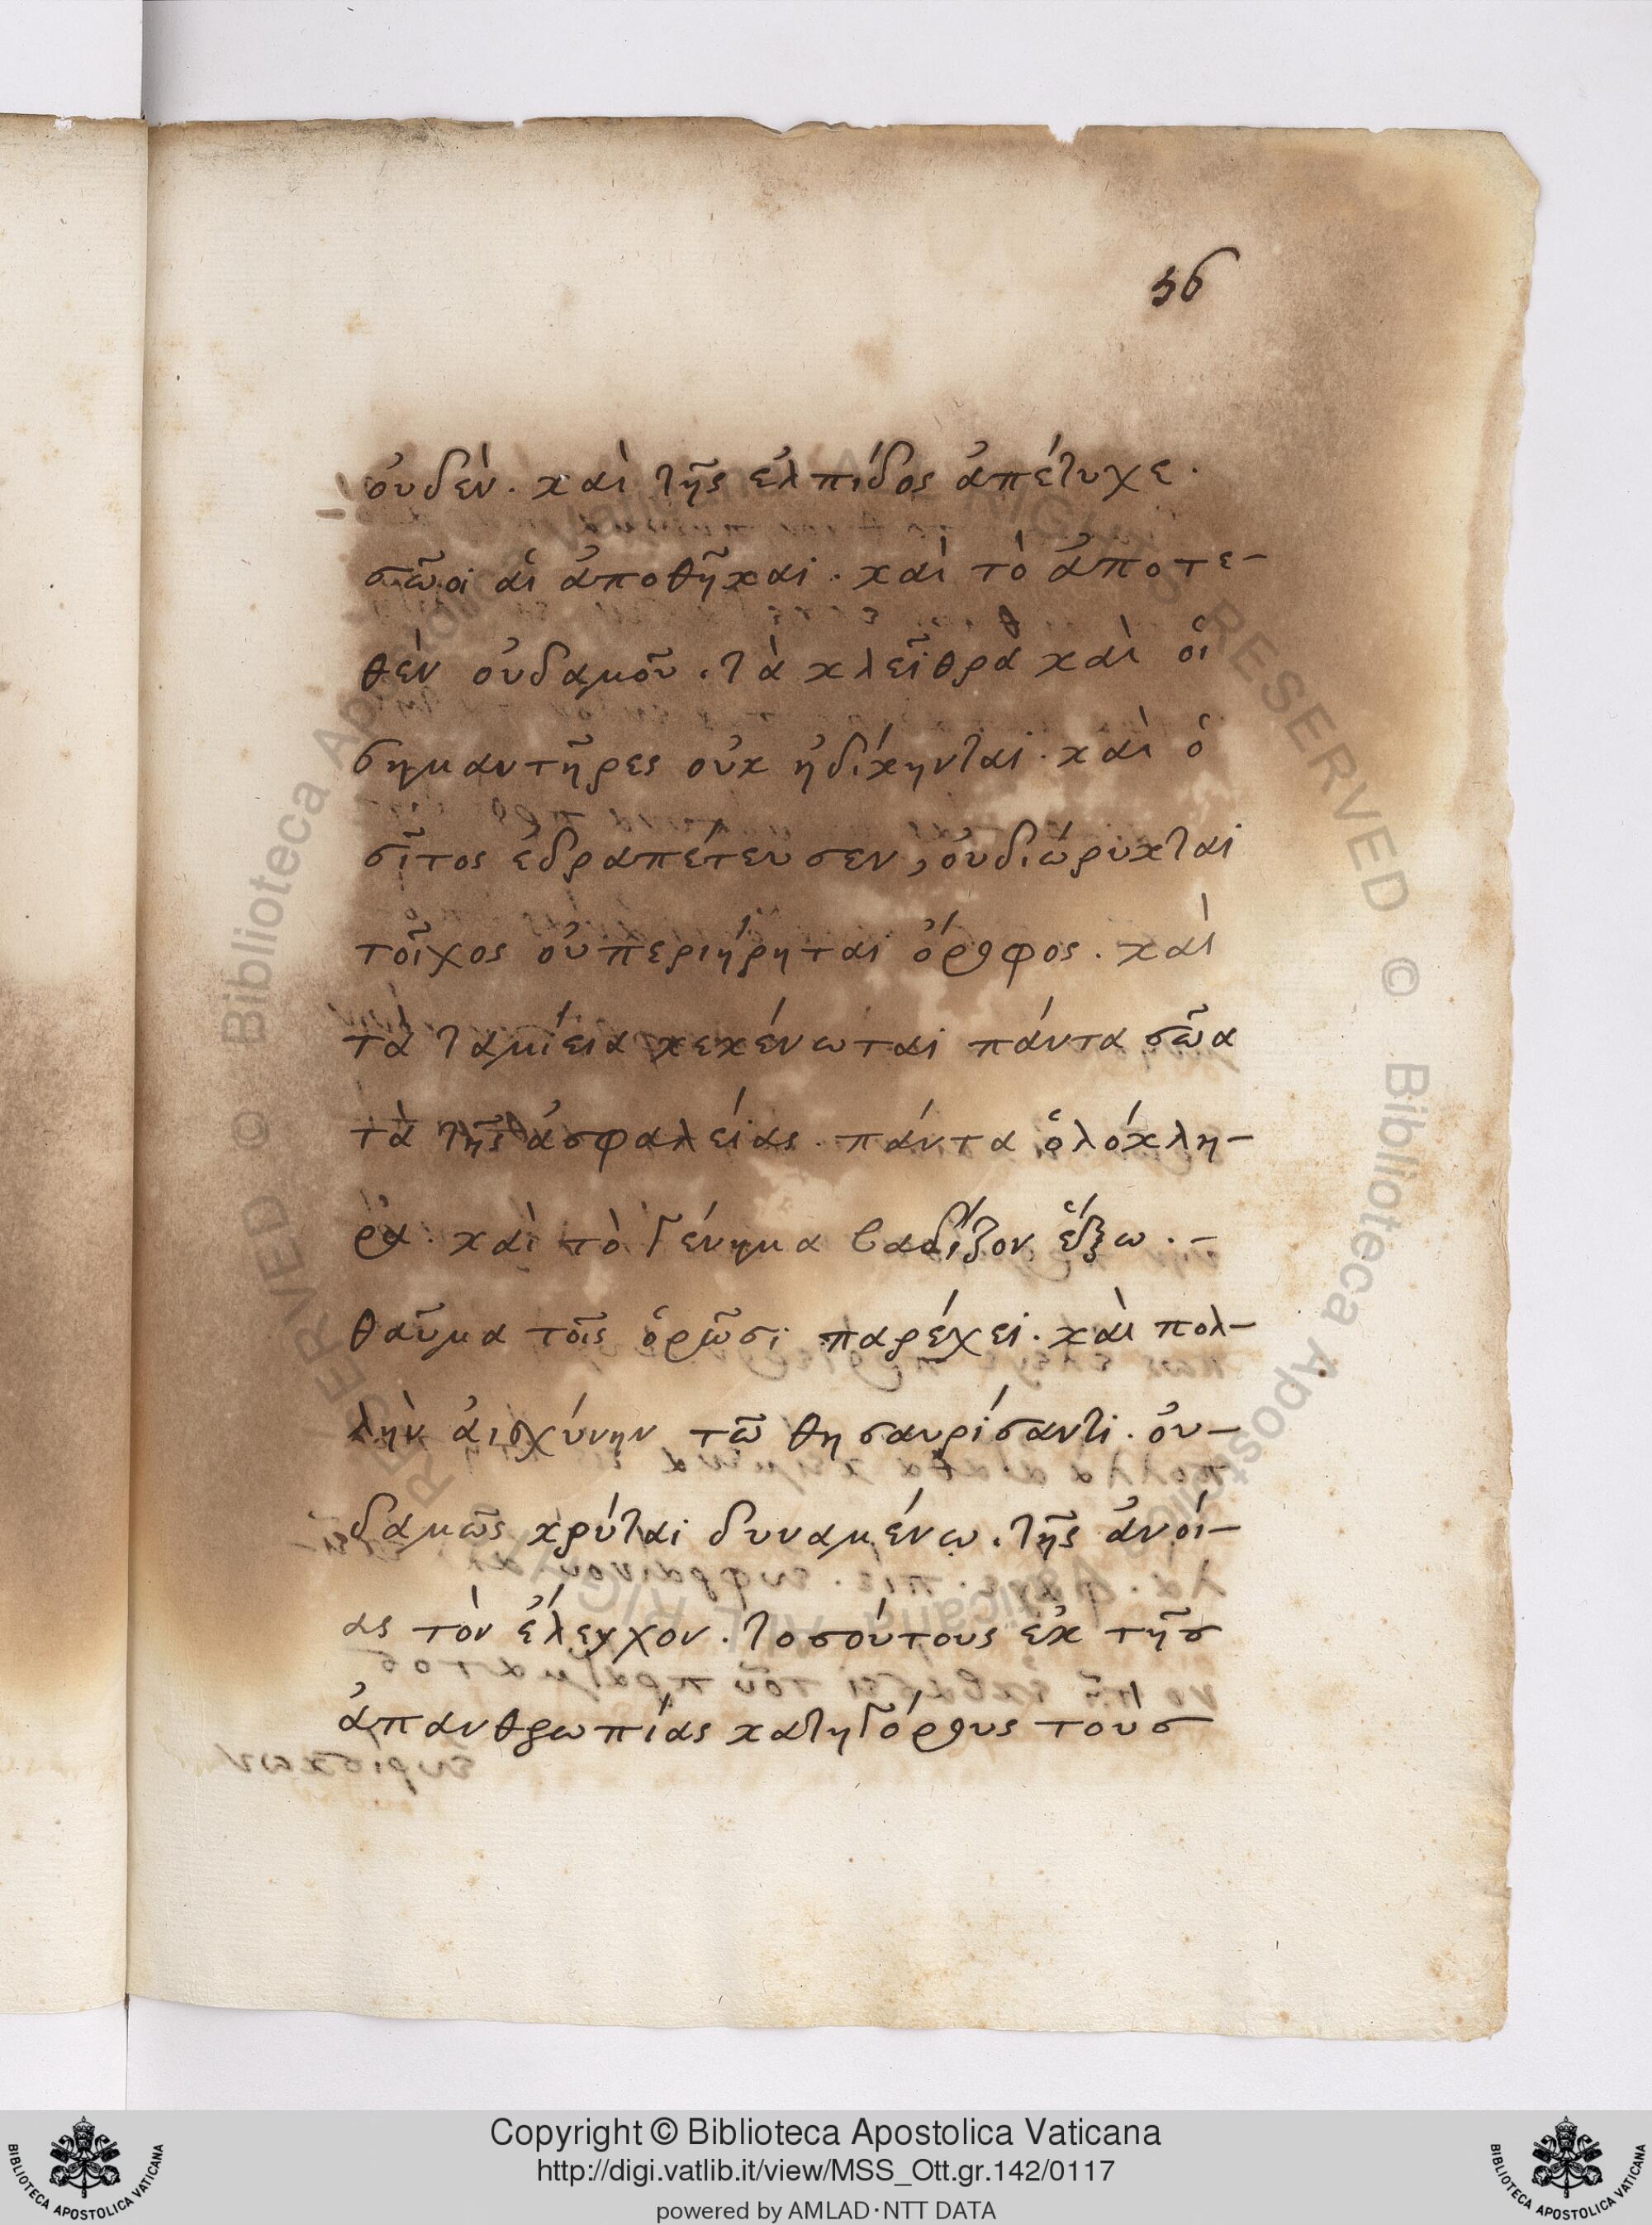 56
οὐδὲν. καὶ τῆς ἐλπίδος ἀπέτυχε.
σῶοι αἱ ἀποθῆκαι. καὶ τὸ ἀποτε-
θὲν οὐδαμοῦ. τὰ κλεῖθρα καὶ οἱ
σημαντῆρες οὐκ ἠδίκηνται. καὶ ὁ
σῖτος ἐδραπέτευσεν, οὐ διώρυκται
τοῖχος οὐ περιήρηται ὄροφος. καὶ
τὰ ταμίεια κεκένωται πάντα σῶα
τὰ τῆς ἀσφαλείας. πάντα ὁλόκλη-
ρα. καὶ τὸ γένημα βαδίζον ἔξω. -
θαῦμα τοῖς ὁρῶσι παρέχει. καὶ πολ-
λὴν αἰσχύνην τῶ θησαυρίσαντι. οὐ-
δαμῶς κρύται δυναμένω. τῆς ἀνοί-
ας τὸν ἔλεγχον. τοσούτους ἐκ τῆσ
ἀπανθρωπίας κατηγόρους τοὺσ
Copyright © Biblioteca Apostolica Vaticana
http://digi.vatlib.it/view/MSS_Ott.gr.142/0117
powered by AMLAD·NTT DATA
BIBLIOTECA APOSTOLICA VATICANA
BIBLIOTECA APOSTOLICA VATICANA